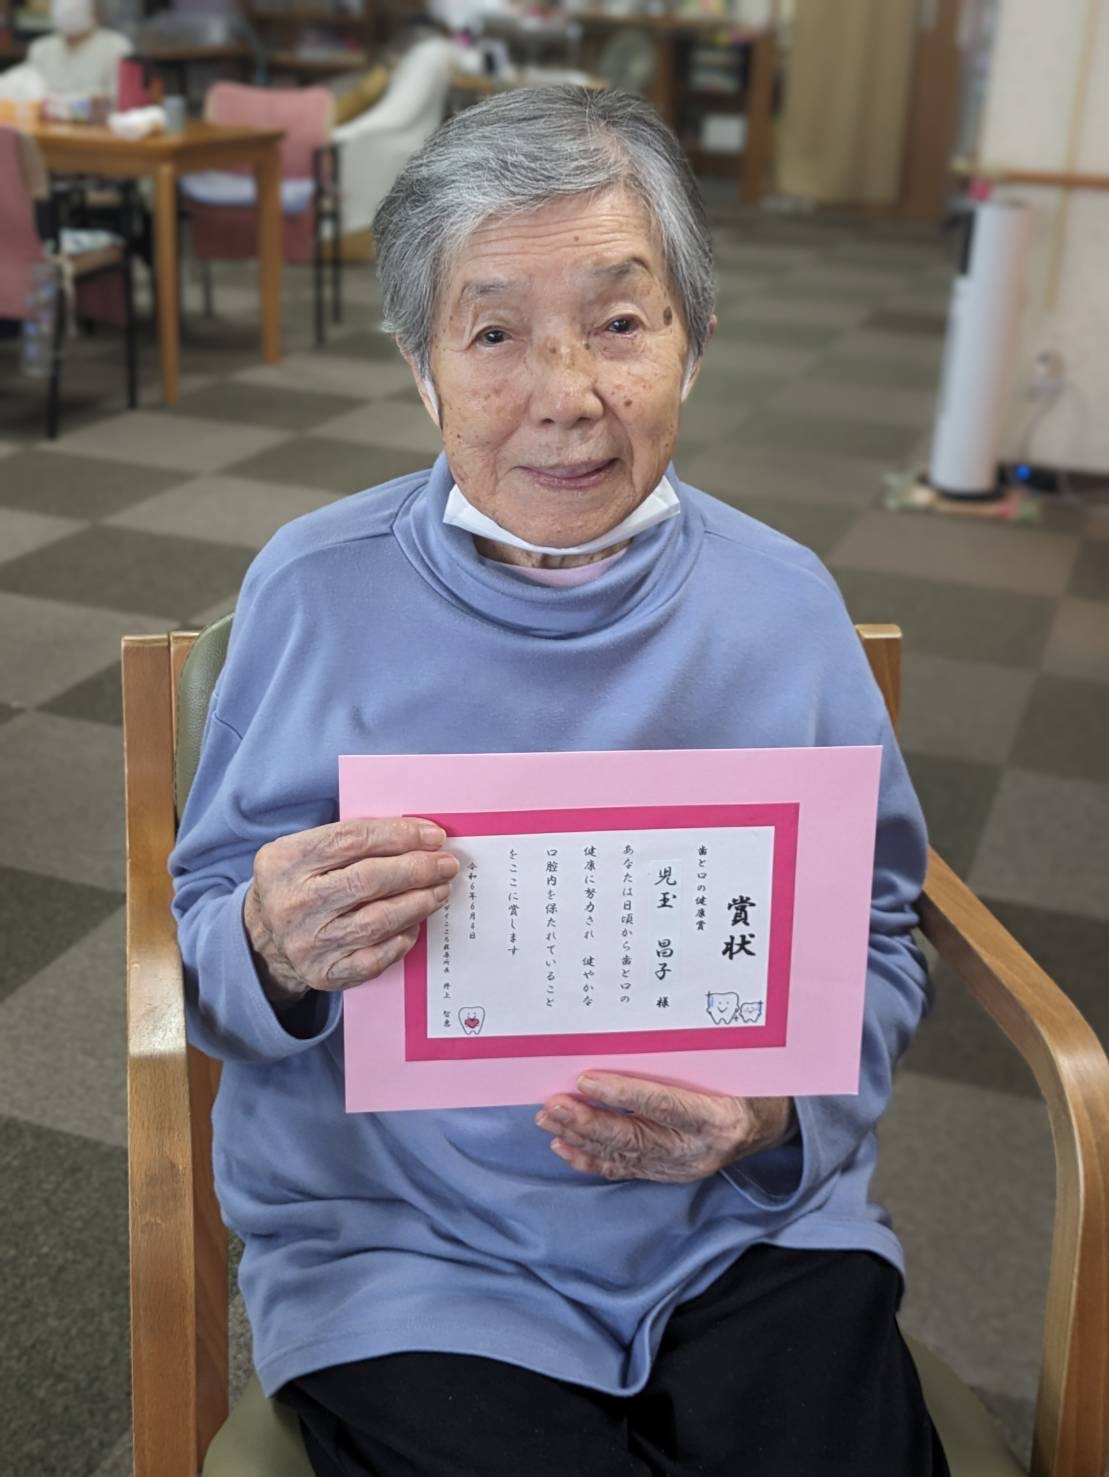 賞状
歯と口の健康賞
児玉 昌子 様
あなたは日頃から歯と口の
健康に努力され 健やかな
口腔内を保たれていること
をここに賞します
令和6年6月4日
井上 智恵